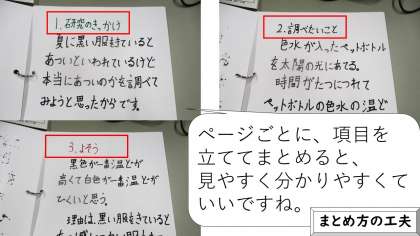 1.研究のきっかけ
夏に黒い服をきていると
あついといわれているけど
本当にあついのかを調べて
みようと思ったからです。
2.調べたいこと
色水が入ったペットボトル
を太陽の光にあてる。
時間がたつにつれて
ペットボトルの色水の温ど
3.よそう
黒色が一番温どが
高くて白色が一番温どが
ひくいと思う。
理由は、黒い服をきていると
ページごとに、項目を
立ててまとめると、
見やすく分かりやすくて
いいですね。
まとめ方の工夫